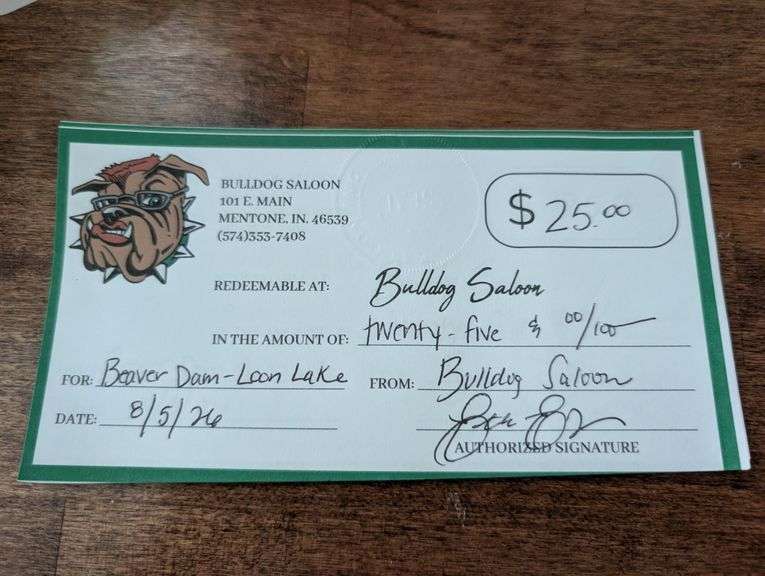 BULLDOG SALOON
101 E. MAIN
MENTONE, IN. 46539
(574)353-7408
$ 25.00
REDEEMABLE AT: Bulldog Saloon
IN THE AMOUNT OF: twenty-five & 00/100
FOR: Beaver Dam-Loon Lake
FROM: Bulldog Saloon
DATE: 8/5/26
AUTHORIZED SIGNATURE